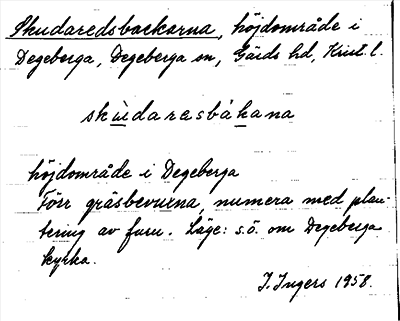 Skudaredsbackarna, höjdområde i
Degeberga, Degeberga sn, Gärds hd, Krist. l.
skùdaresbákana
höjdområde i Degeberga
Förr gräsbevuxna, numera med plan-
tering av furu. Läge: s.ö. om Degeberga
kyrka.
I. Ingers 1958.